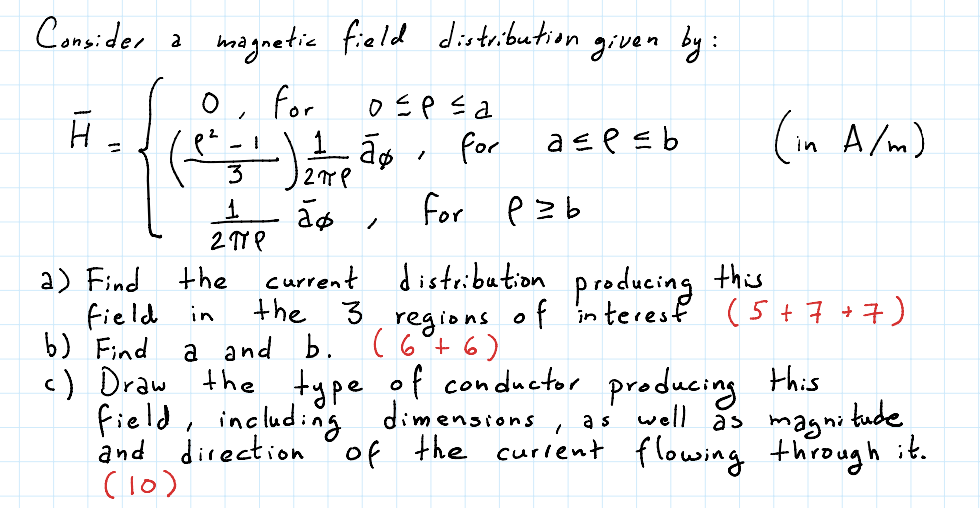 Consider a magnetic field distribution given by:
H̄ = { 0, for 0 ≤ ρ ≤ a
((ρ² - 1)/3) 1/(2πρ) ā_ϕ, for a ≤ ρ ≤ b (in A/m)
1/(2πρ) ā_ϕ, for ρ ≥ b
a) Find the current distribution producing this
field in the 3 regions of interest (5 + 7 + 7)
b) Find a and b. (6 + 6)
c) Draw the type of conductor producing this
field, including dimensions, as well as magnitude
and direction of the current flowing through it.
(10)